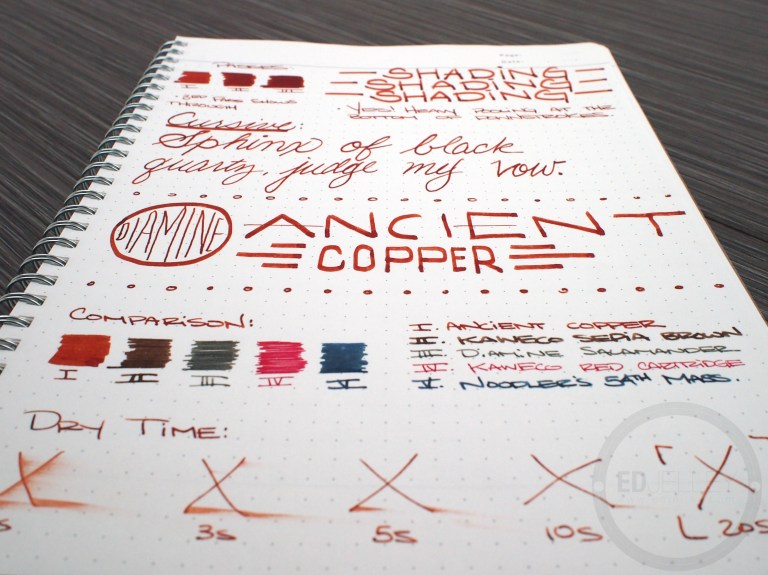 PASSES
I II III
3RD PASS SHOWS
THROUGH
SHADING
SHADING
SHADING
· YES! HEAVY POOLING AT THE
BOTTOM OF DOWNSTROKES.
Cursive:
Sphinx of black
quartz, judge my vow.
DIAMINE
ANCIENT
COPPER
COMPARISON:
I II III IV V
I. ANCIENT COPPER
II. KAWECO SEPIA BROWN
III. DIAMINE SALAMANDER
IV. KAWECO RED CARTRIDGE
V. NOODLER'S 54TH MASS.
DRY TIME:
X X X X X
S 3S 5S 10S 20S
ED